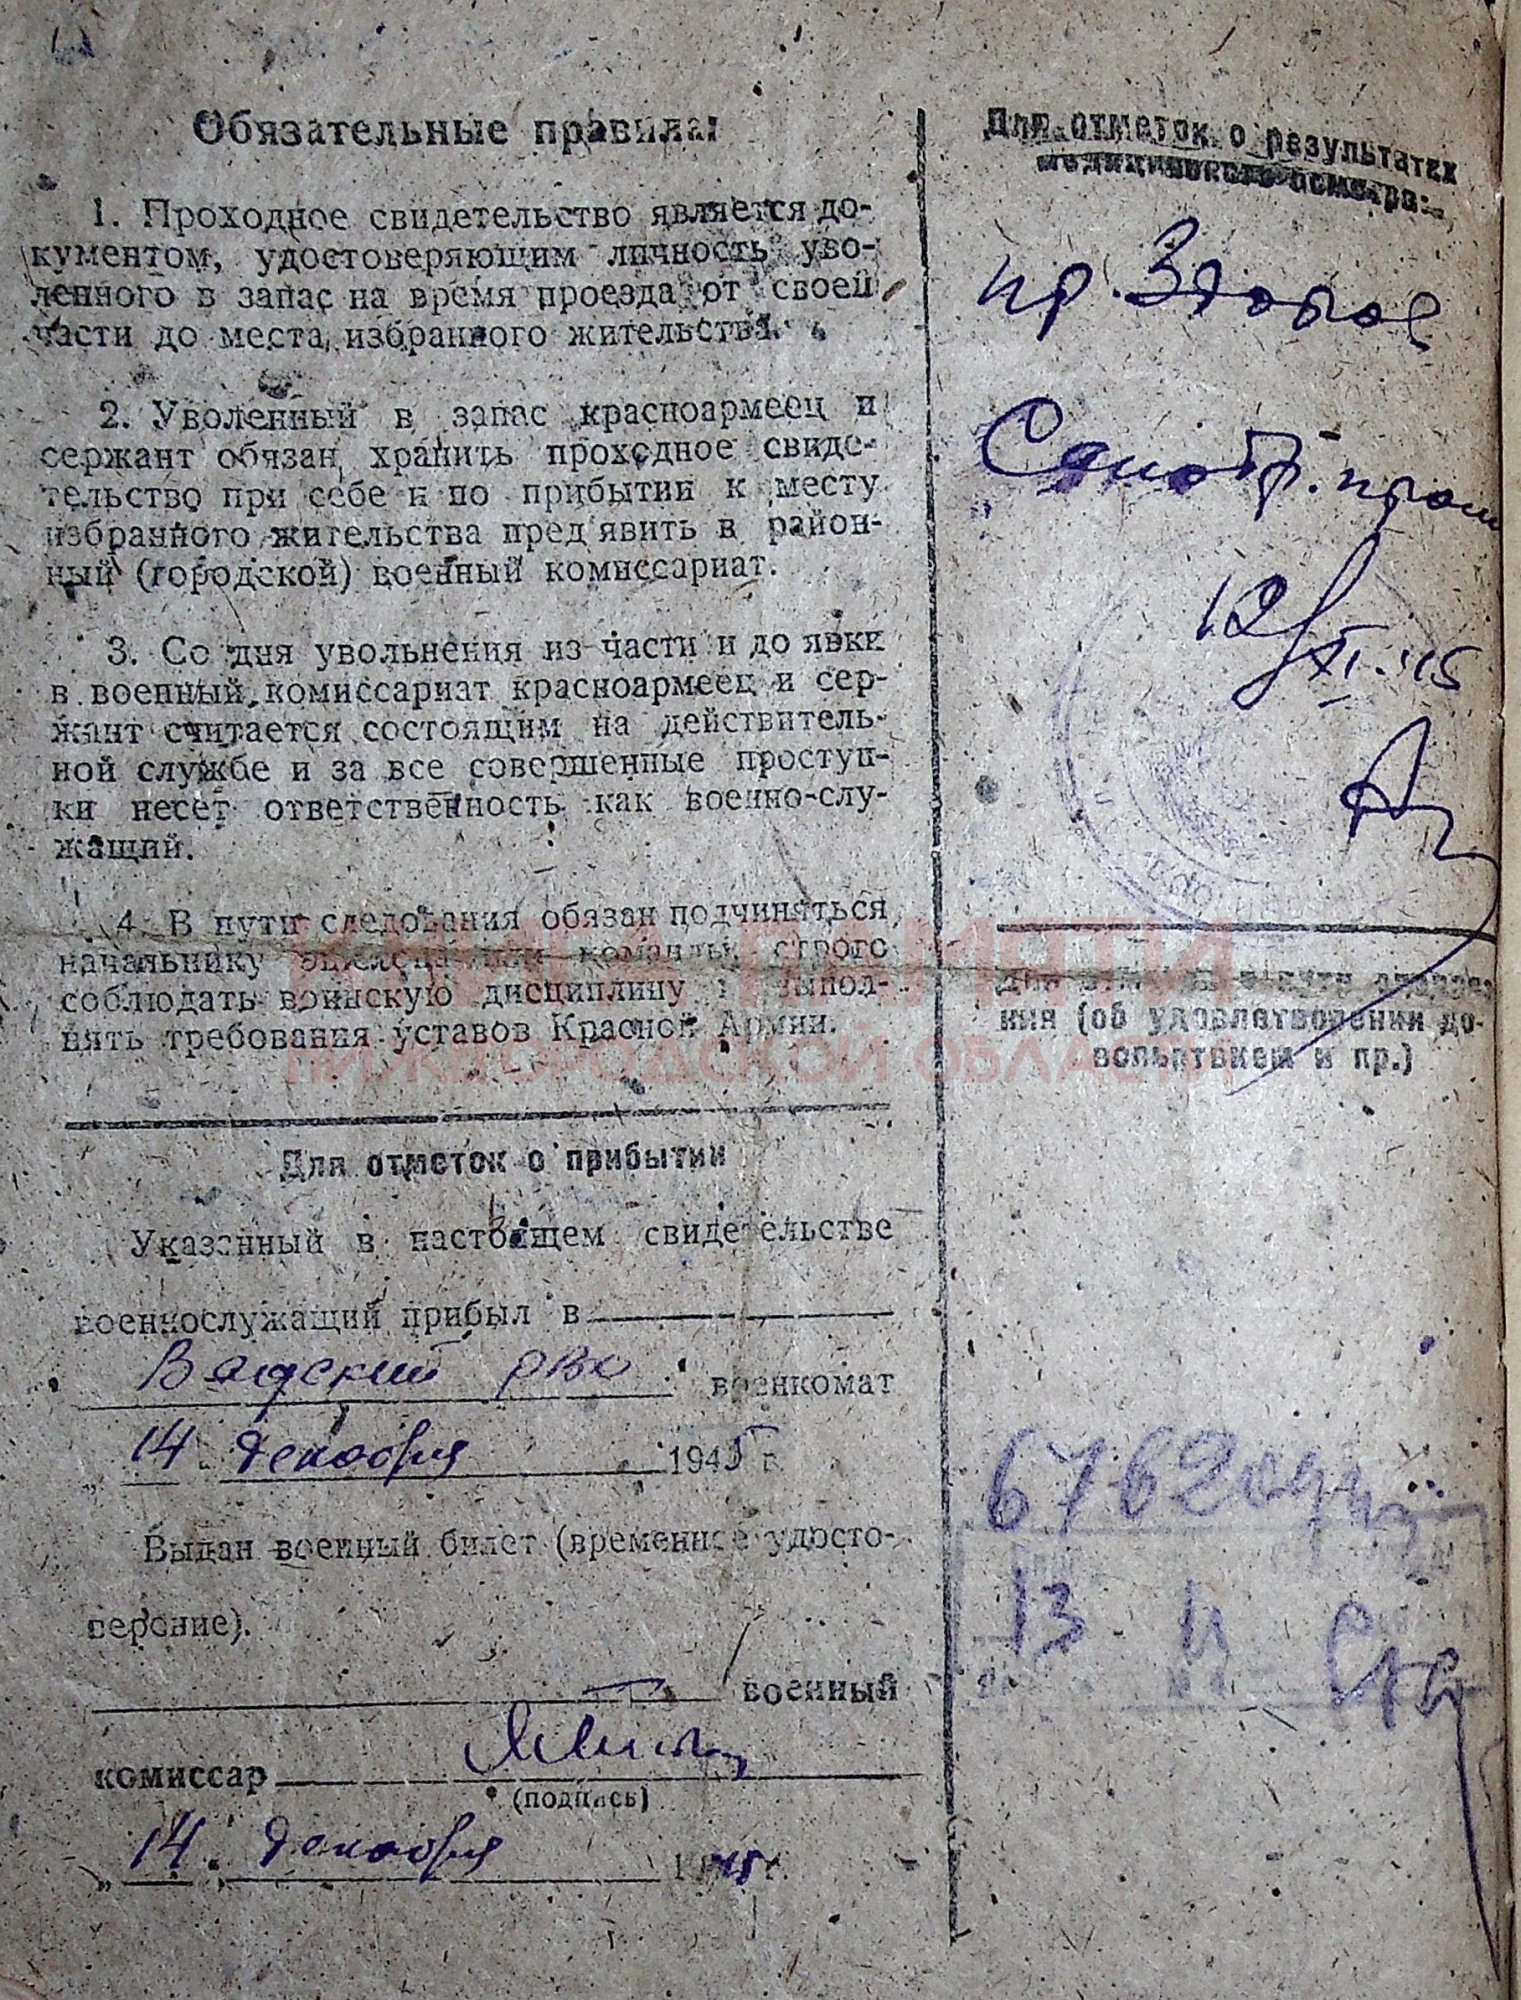 Обязательные правила:
1. Проходное свидетельство является до-
кументом, удостоверяющим личность уво-
ленного в запас на время проезда от своей
части до места избранного жительства.
2. Уволенный в запас красноармеец и
сержант обязан хранить проходное свиде-
тельство при себе и по прибытии к месту
избранного жительства пред'явить в район-
ный (городской) военный комиссариат.
3. Со дня увольнения из части и до явки
в военный комиссариат красноармеец и сер-
жант считается состоящим на действитель-
ной службе и за все совершенные проступ-
ки несет ответственность как военно-слу-
жащий.
4. В пути следования обязан подчиняться
начальнику эшелона или команды, строго
соблюдать воинскую дисциплину и выпол-
нять требования уставов Красной Армии.
Для отметок о прибытии
Указанный в настоящем свидетельстве
военнослужащий прибыл в
Вадский РВК военкомат
14 декабря 1945 г.
Выдан военный билет (временное удосто-
верение).
военный
комиссар
(подпись)
„14" декабря 1945 г.
Для отметок о результатах
медицинского осмотра:
пр. Здоров
Санобр. прош
12/XI-45
Для отметок в пути следова-
ния (об удовлетворении до-
вольствием и пр.)
6762
13
КНИГА ПАМЯТИ
НИЖЕГОРОДСКОЙ ОБЛАСТИ